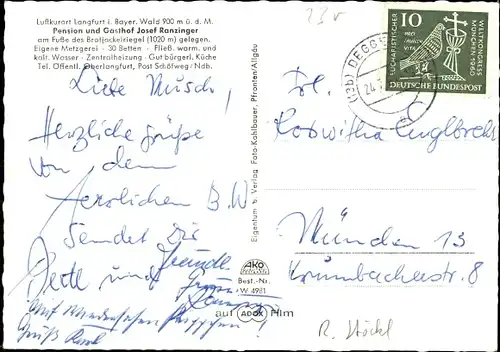 Luftkurort Langfurt i. Bayer. Wald 900 m ü. d. M.
Pension und Gasthof Josef Ranzinger
am Fuße des Brotjackelriegel (1020 m) gelegen.
Eigene Metzgerei - 30 Betten - Fließ. warm. und
kalt. Wasser - Zentralheizung - Gut bürgerl. Küche
Tel. Öffentl. Oberlangfurt, Post Schöfweg/Ndb.
Liebe Musch!
Herzliche Grüße
von dem
herrlichen B.W
sendet Dir
und
Gruß
Eigentum u. Verlag Foto-Kahlbauer, Pfronten/Allgäu
AKO
Best.-Nr.
W 4981
auf ADOX Film
23v
(13b) DEGG
24.
10
EUCHARISTISCHER
WELTKONGRESS
MÜNCHEN 1960
PRO MUNDI VITA
DEUTSCHE BUNDESPOST
Frl.
Roswitha Englbrecht
München 13
Krumbacherstr. 8
R. Stöckl